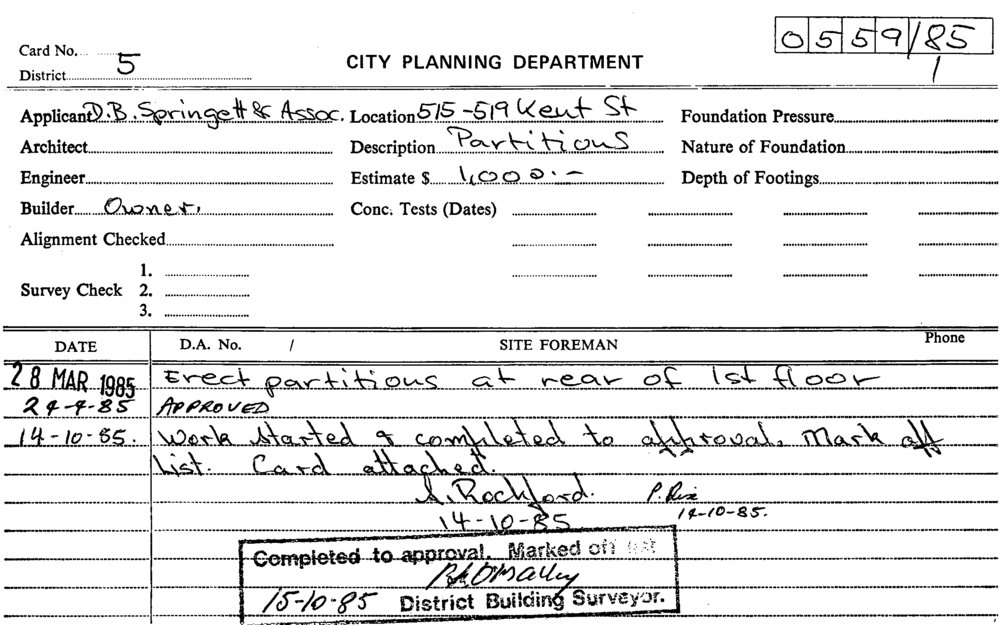 0559/85
Card No.
5
CITY PLANNING DEPARTMENT
1
District
Applicant D.B. Springett & Assoc. Location 515-519 Kent St Foundation Pressure
Architect Description Partitions Nature of Foundation
Engineer Estimate $ 1,000.- Depth of Footings
Builder Owner. Conc. Tests (Dates)
Alignment Checked
1.
Survey Check 2.
3.
DATE D.A. No. / SITE FOREMAN Phone
28 MAR 1985 Erect partitions at rear of 1st floor
24-4-85 APPROVED
14-10-85. Work started & completed to approval. Mark off
List. Card attached.
Rochford. P.
14-10-85 14-10-85.
Completed to approval. Marked off list
O'Malley
15-10-85 District Building Surveyor.